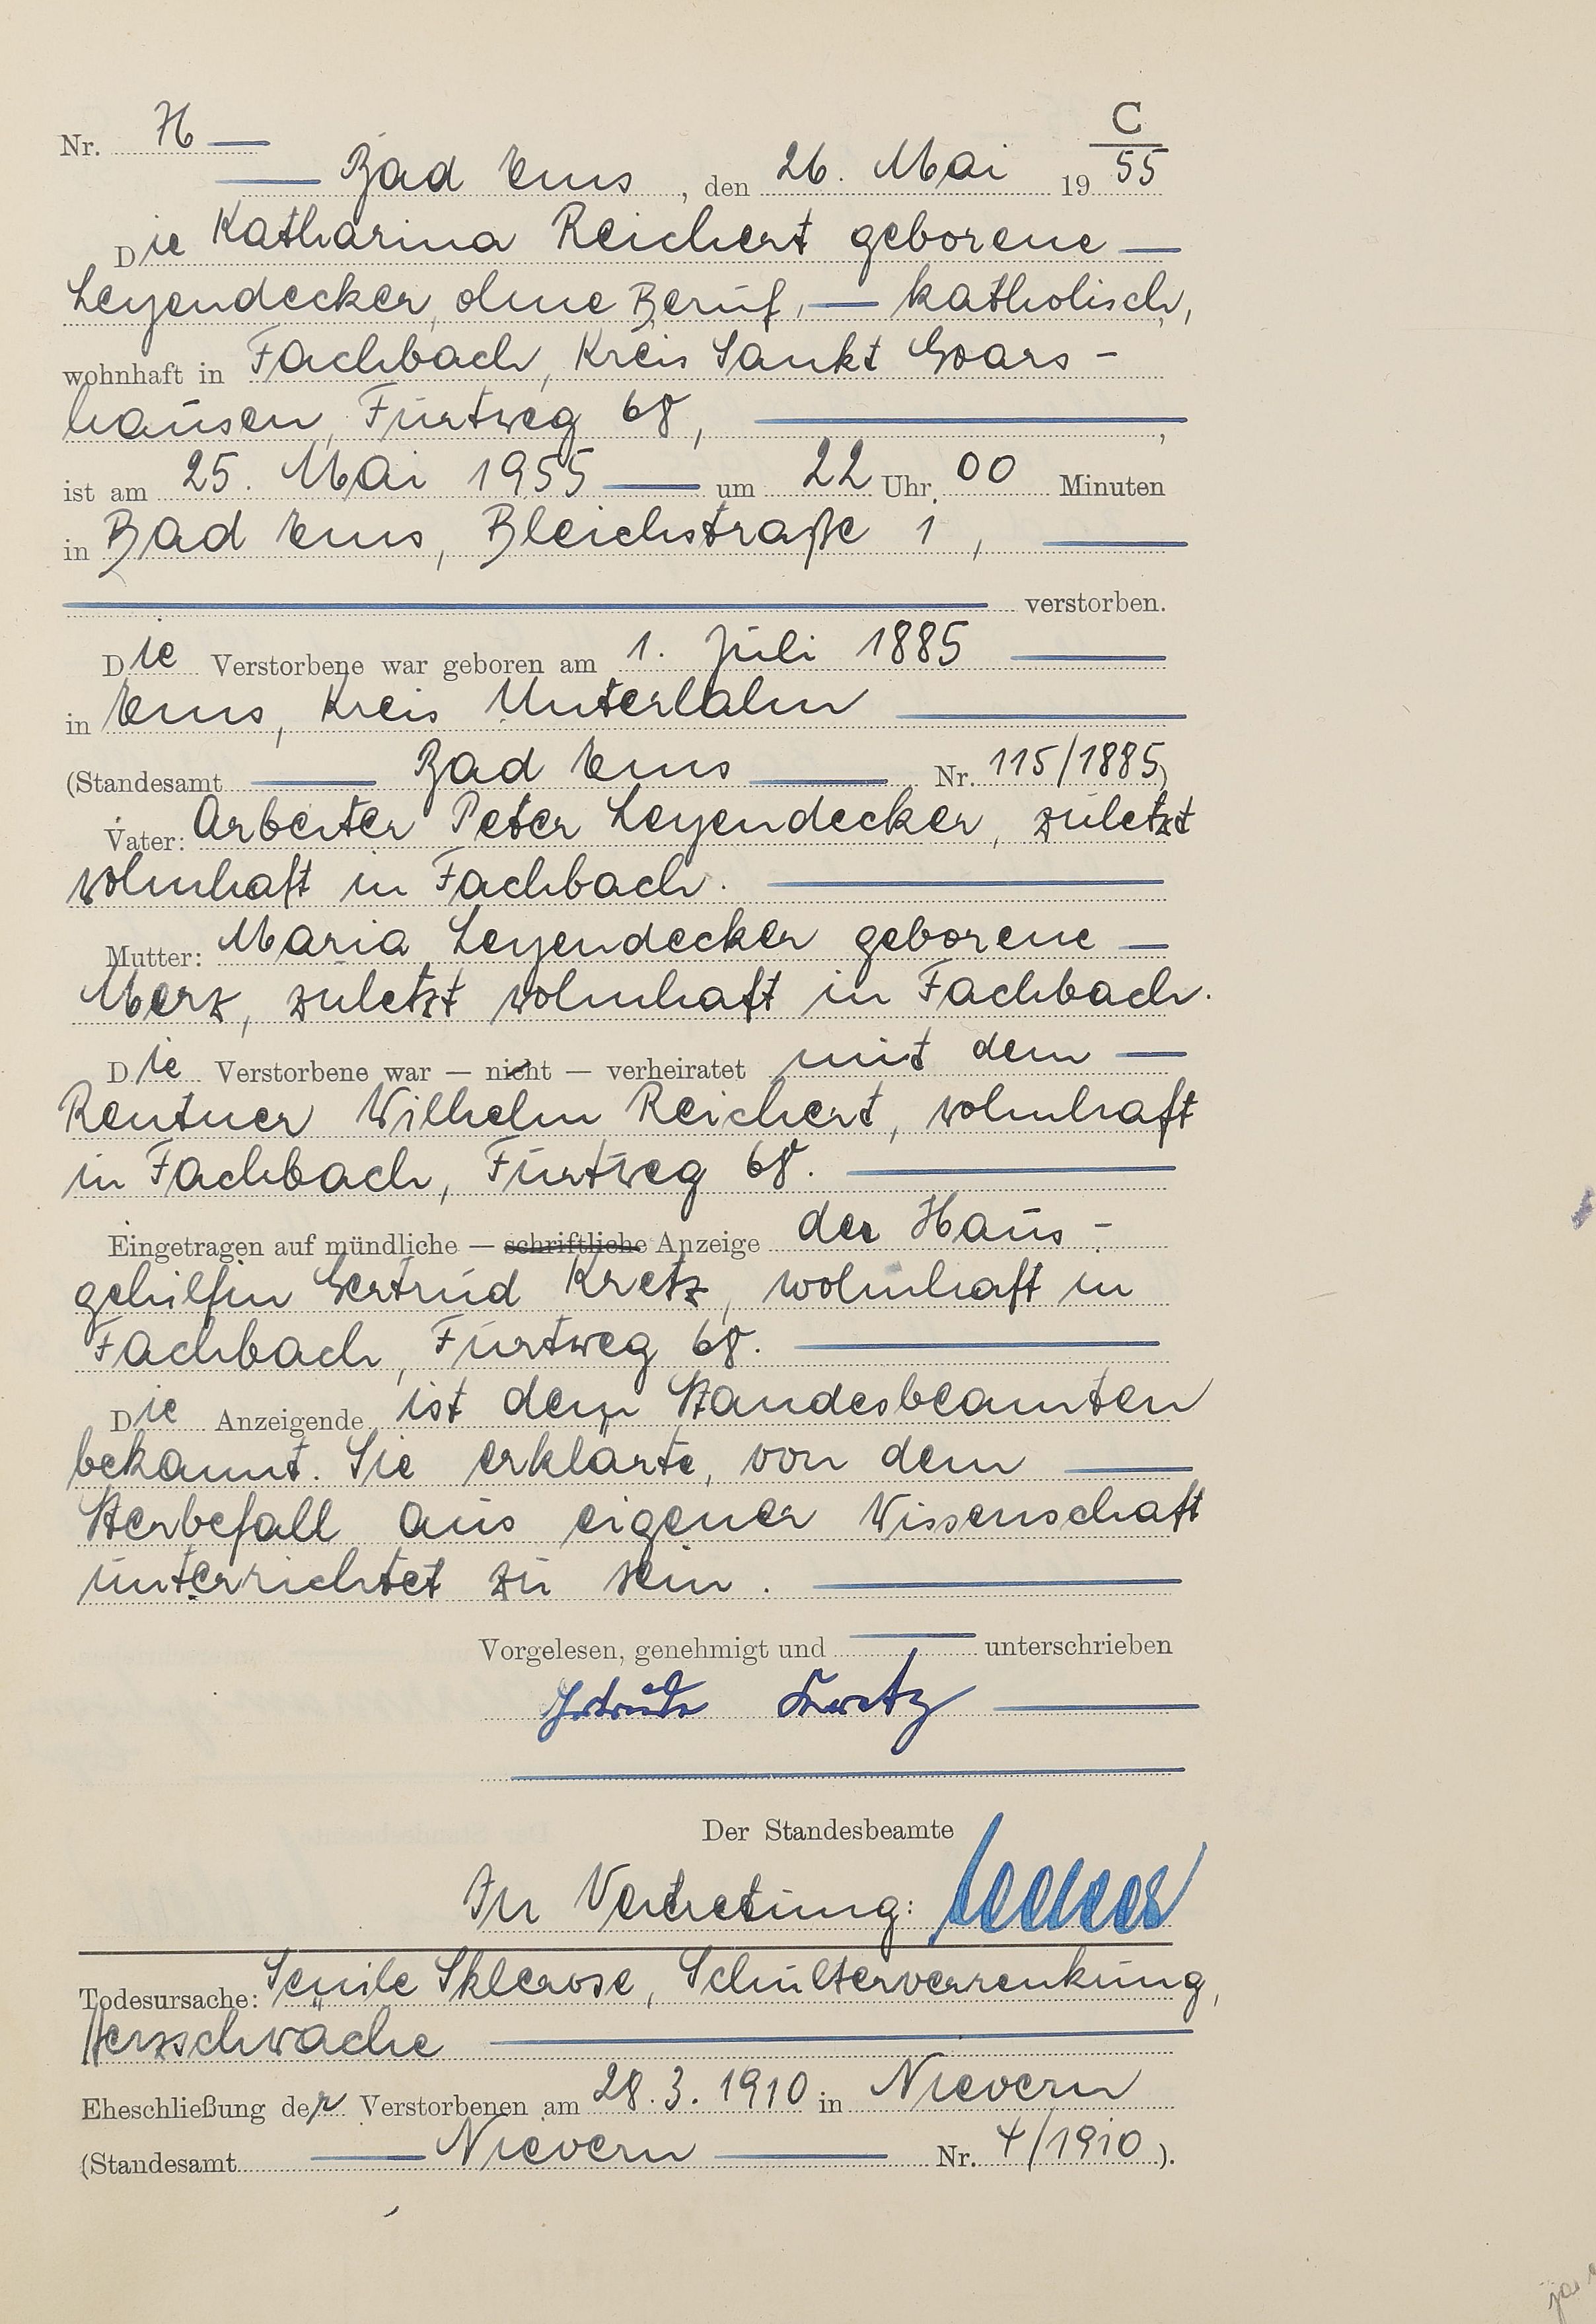 C
Nr. 76
Bad Ems, den 26. Mai 1955
Die Katharina Reichert geborene
Leyendecker, ohne Beruf, — katholisch,
wohnhaft in Fachbach, Kreis Sankt Goars-
hausen, Furtweg 68,
ist am 25. Mai 1955 um 22 Uhr 00 Minuten
in Bad Ems, Bleichstraße 1,
verstorben.
Die Verstorbene war geboren am 1. Juli 1885
in Ems, Kreis Unterlahn
(Standesamt Bad Ems Nr. 115/1885)
Vater: Arbeiter Peter Leyendecker, zuletzt
wohnhaft in Fachbach.
Mutter: Maria Leyendecker geborene
Merz, zuletzt wohnhaft in Fachbach.
Die Verstorbene war — nicht — verheiratet mit dem
Rentner Wilhelm Reichert, wohnhaft
in Fachbach, Furtweg 68.
Eingetragen auf mündliche — schriftliche Anzeige der Haus-
gehilfin Gertrud Kretz, wohnhaft in
Fachbach, Furtweg 68.
Die Anzeigende ist dem Standesbeamten
bekannt. Sie erklärte, von dem
Sterbefall aus eigener Wissenschaft
unterrichtet zu sein.
Vorgelesen, genehmigt und unterschrieben
Kretz
Der Standesbeamte
In Vertretung:
Todesursache: Senile Sklerose, Schulterverrenkung,
Herzschwäche
Eheschließung der Verstorbenen am 28.3.1910 in Nievern
(Standesamt Nievern Nr. 4/1910).